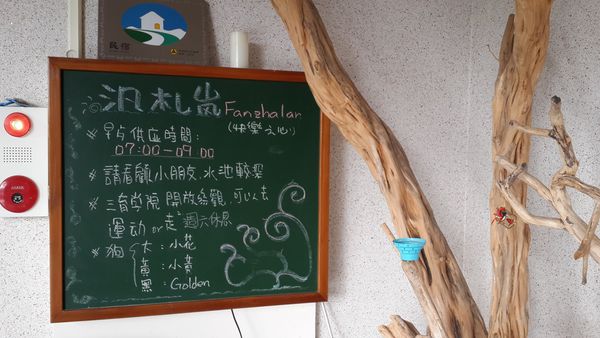 民宿
汎札嵐 Fanzhalan
(快樂之心)
※ 早点供应時間:
07:00-09:00
※ 請看顧小朋友.水池較深
※ 三育學院 開放參觀.可以去
運動 or 走走 週六休息
※ 狗 大:小花
黃:小黃
黑:Golden